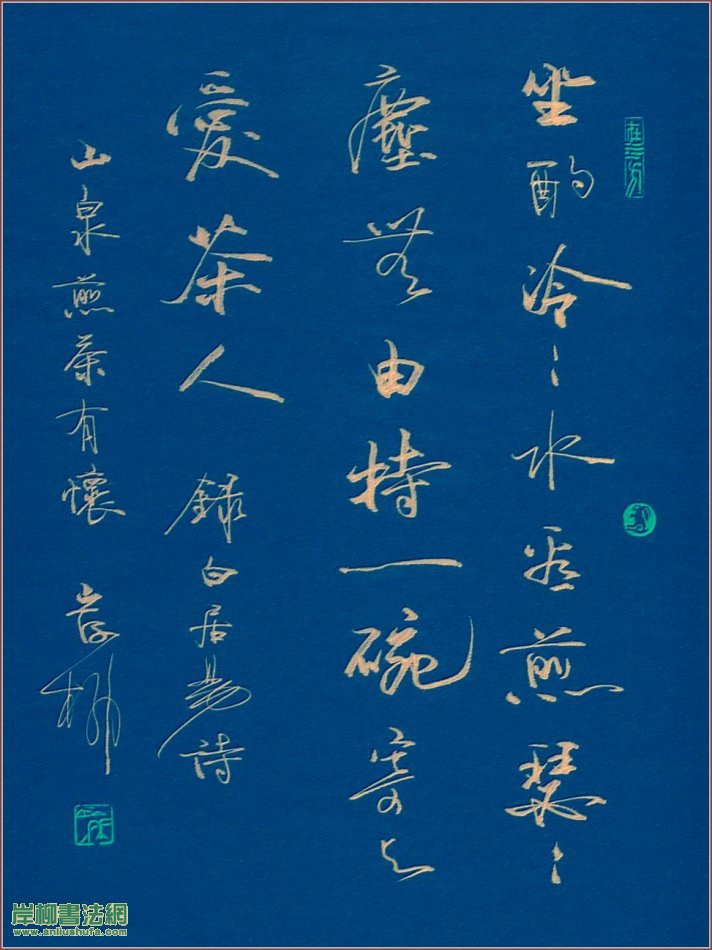 坐酌泠〻水看煎瑟〻
塵無由持一碗寄与
愛茶人 錄白居易詩
山泉煎茶有懷 岸柳
岸柳書法網
www.anliushufa.com